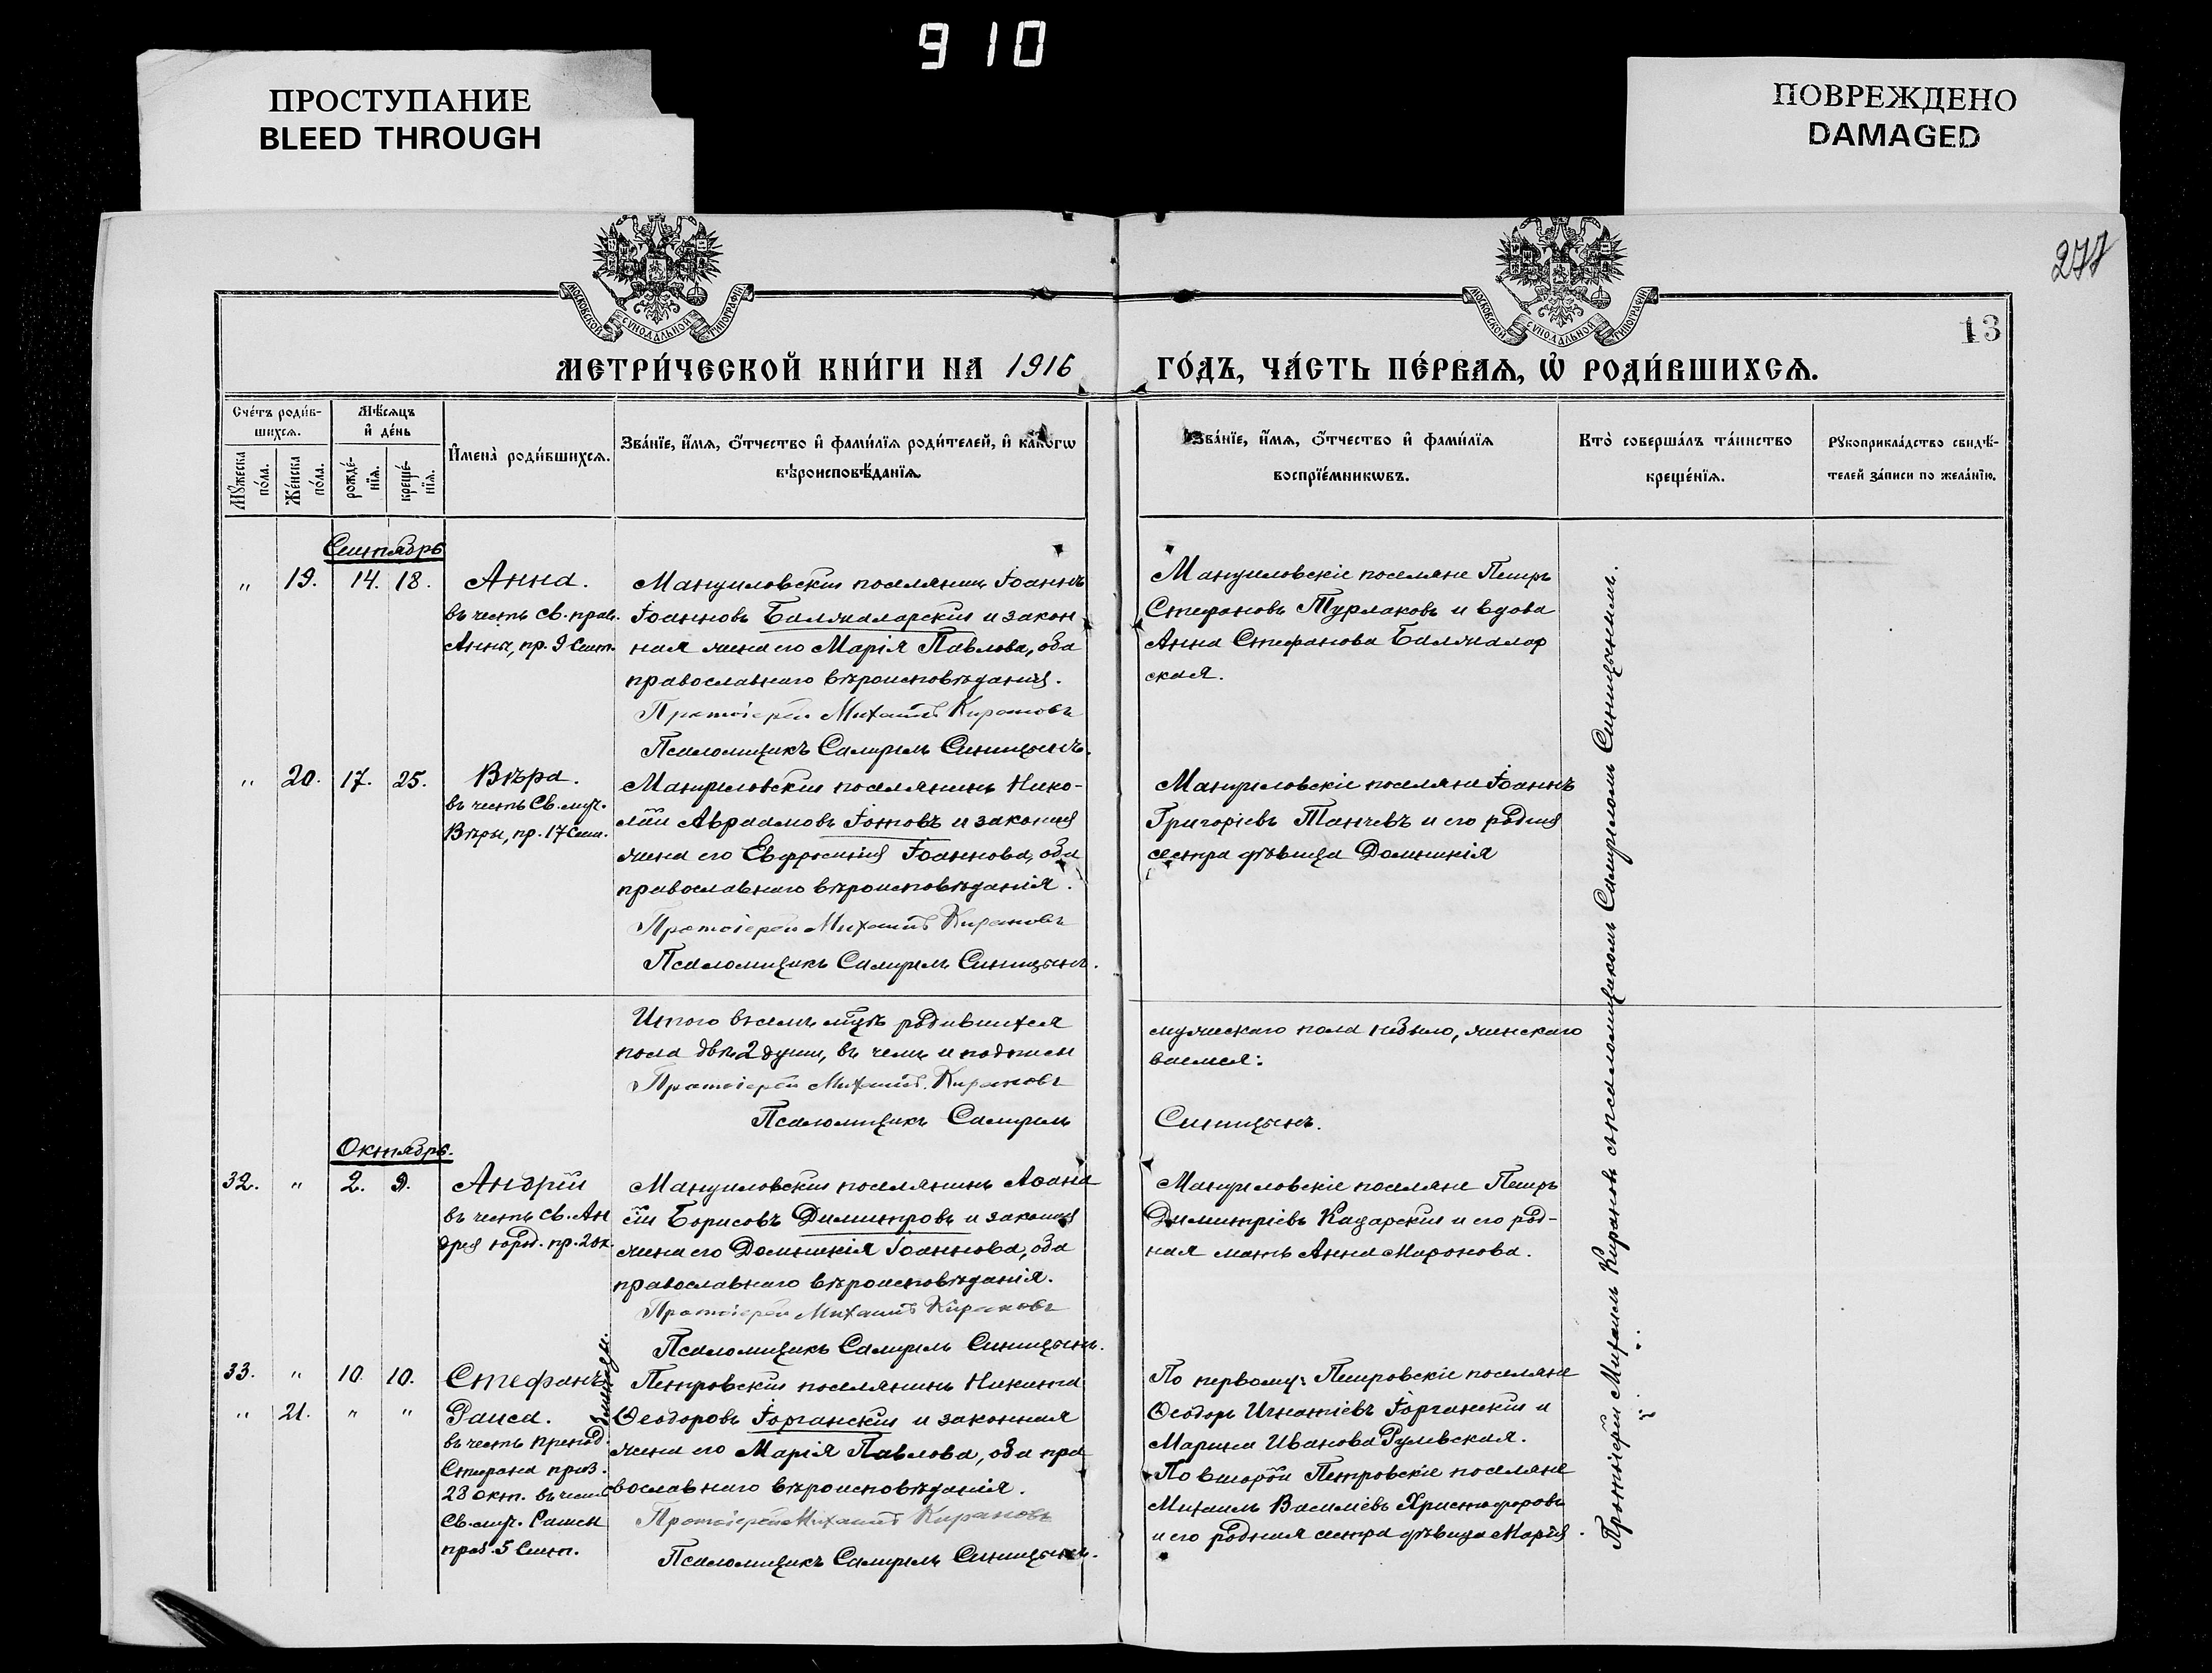 910
ПРОСТУПАНИЕ
BLEED THROUGH
ПОВРЕЖДЕНО
DAMAGED
277
13
МОСКОВСКОЙ СѴНОДАЛЬНОЙ ТИПОГРАФІИ
МОСКОВСКОЙ СѴНОДАЛЬНОЙ ТИПОГРАФІИ
МЕТРИ́ЧЕСКОЙ КНИ́ГИ НА 1916 ГО́ДЪ, ЧА́СТЬ ПЕ́РВАѦ, Ѡ҆ РОДИ́ВШИХСѦ.
Сче́тъ роди́в-
шихсѧ.
Мѣ́сѧцъ
и҆ де́нь
Мꙋ́жеска
по́ла.
Же́нска
по́ла.
рожде́-
нїѧ.
креще́-
нїѧ.
И҆мена̀ роди́вшихсѧ.
Зва́нїе, и҆́мѧ, ѻ҆́тчество и҆ фами́лїѧ роди́телей, и҆ како́гѡ
вѣроисповѣ́данїѧ.
Зва́нїе, и҆́мѧ, ѻ҆́тчество и҆ фами́лїѧ
воспрїе́мникѡвъ.
Кто̀ соверша́лъ та́инство
креще́нїѧ.
Рꙋкоприкла́дство свидѣ́-
телей за́писи по жела́нїю.
Сентябрь
" 19. 14. 18.
Анна.
въ честь св. прав.
Анны, пр. 9 Сент.
Мануиловскій поселянинъ Іоаннъ
Іоанновъ Балжаларскій и закон
ная жена его Марія Павлова, оба
православнаго вѣроисповѣданія.
Протоіерей Михаилъ Кирановъ
Псаломщикъ Самуилъ Синицынъ.
Мануиловскіе поселяне Петръ
Стефановъ Турлаковъ и вдова
Анна Стефанова Балжалар
ская.
" 20. 17. 25.
Вѣра.
въ честь Св. муч.
Вѣры, пр. 17 Сен.
Мануиловскій поселянинъ Нико-
лай Авраамовъ Іотовъ и законная
жена его Евфросинія Іоаннова, оба
православнаго вѣроисповѣданія.
Протоіерей Михаилъ Кирановъ
Псаломщикъ Самуилъ Синицынъ.
Мануиловскіе поселяне Іоаннъ
Григоріевъ Танчевъ и его родная
сестра дѣвица Домникія
Итого въ семъ мѣсяцѣ родившихся
пола двѣ 2 души, въ чемъ и подписы
Протоіерей Михаилъ Кирановъ
Псаломщикъ Самуилъ
мужескаго пола небыло, женскаго
ваемся:
Синицынъ.
Октябрь.
32. " 2. 9.
Андрей
въ честь св. Ан
дрея юрод. пр. 2 ок.
Мануиловскій поселянинъ Афана
сій Борисовъ Димитровъ и законная
жена его Домникія Іоаннова, оба
православнаго вѣроисповѣданія.
Протоіерей Михаилъ Кирановъ
Псаломщикъ Самуилъ Синицынъ.
Мануиловскіе поселяне Петръ
Димитріевъ Кадарскій и его род-
ная мать Анна Миронова.
33. " 10. 10.
" 21. " "
Стефанъ
Раиса.
близнецы.
въ честь препод.
Стефана праз.
28 Окт. въ честь
Св. муч. Раисы
праз. 5 Сент.
Петровскій поселянинъ Никита
Ѳеодоровъ Іорганскій и законная
жена его Марія Павлова, оба пра
вославнаго вѣроисповѣданія.
Протоіерей Михаилъ Кирановъ
Псаломщикъ Самуилъ Синицынъ.
По первому: Петровскіе поселяне
Ѳеодоръ Игнатіевъ Іорганскій и
Марина Иванова Рулевская.
По второй Петровскіе поселяне
Михаилъ Василіевъ Христофоровъ
и его родная сестра дѣвица Марія.
Протоіерей Михаилъ Кирановъ съ псаломщикомъ Самуиломъ Синицынымъ.